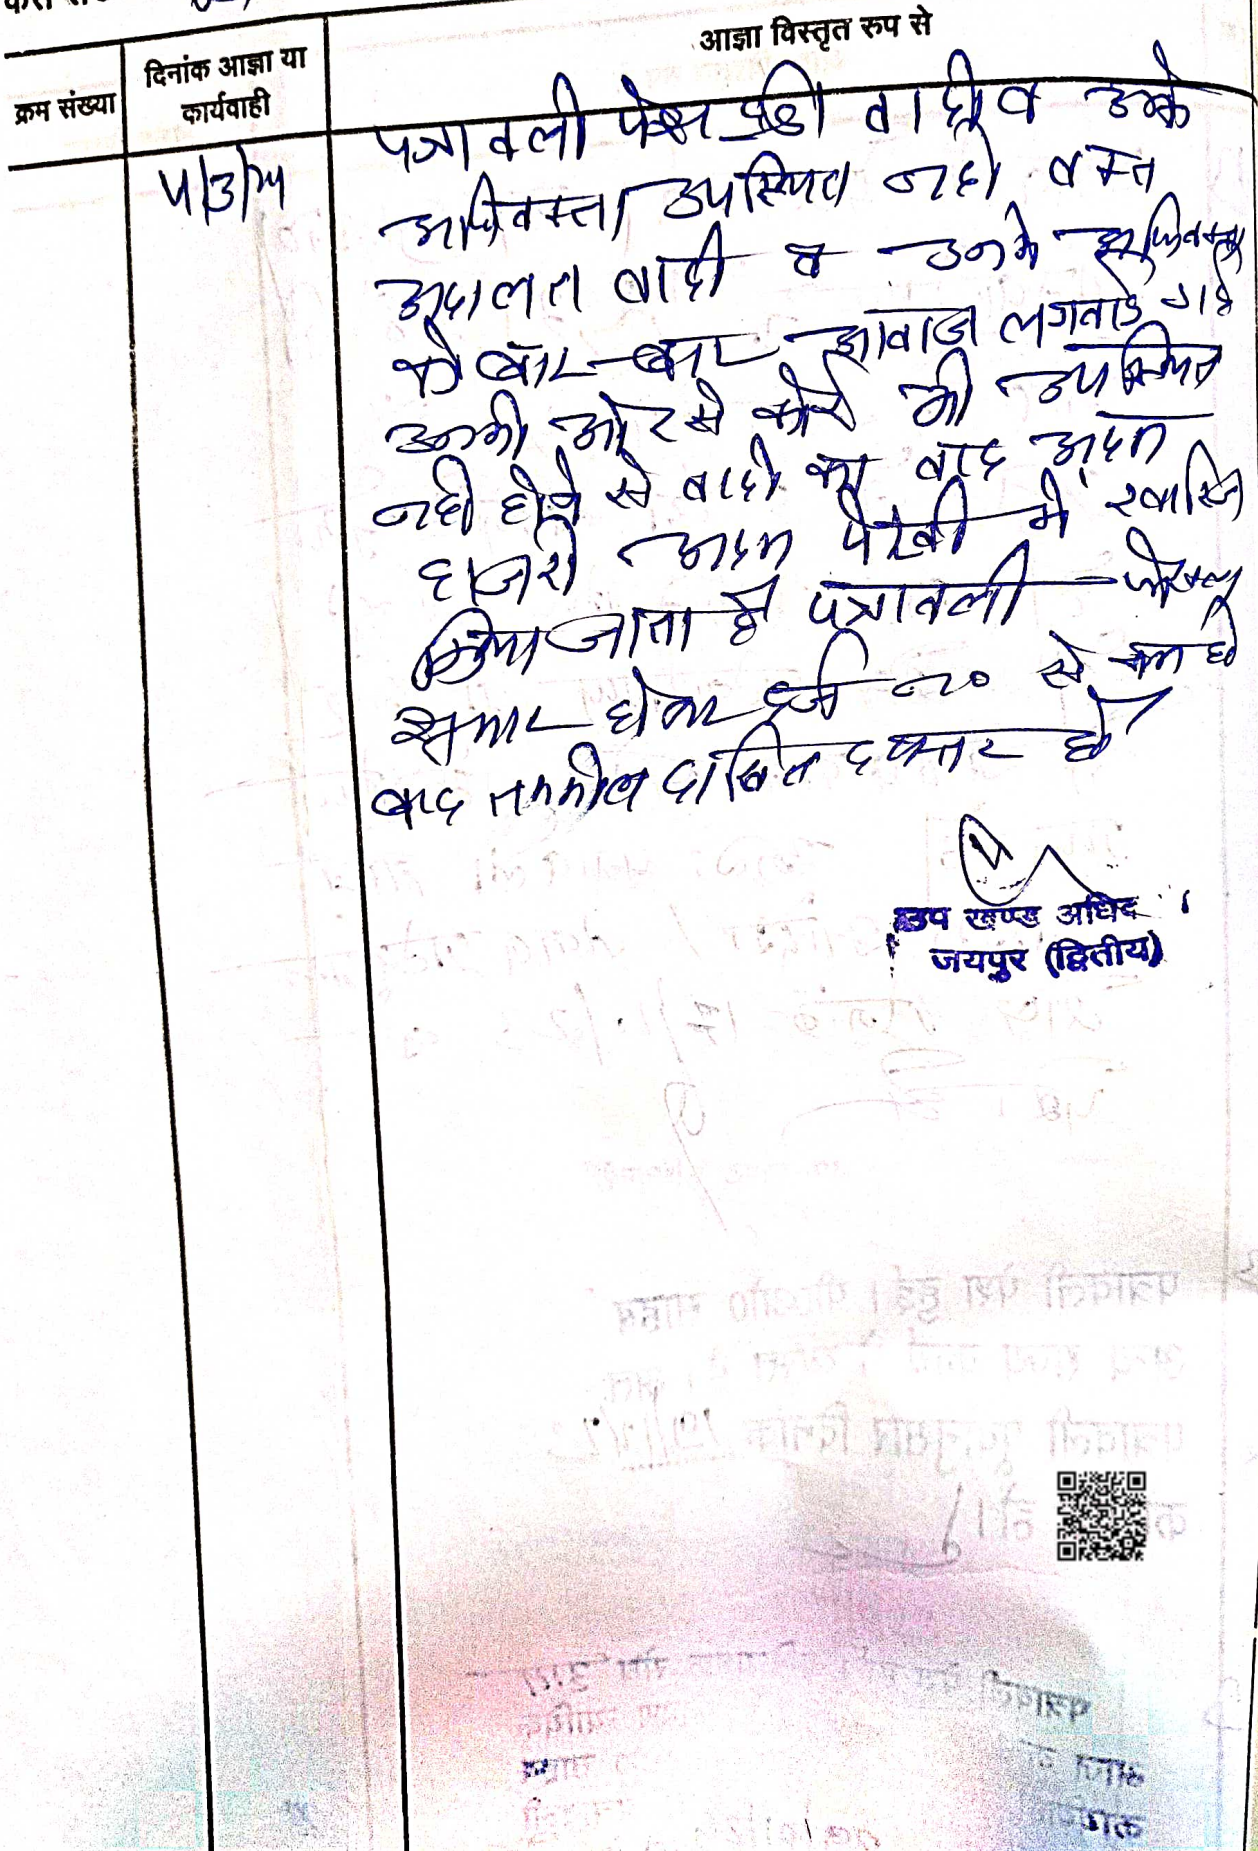 क्रम संख्या
दिनांक आज्ञा या
कार्यवाही
आज्ञा विस्तृत रुप से
पत्रावली पेश हुई। वादी व उनके
अधिवक्ता उपस्थित नही वक्त
अदालत वादी व उनके अधिवक्ता
को बार-बार आवाज लगवाई गई
उनकी ओर से कोई भी उपस्थित
नही होने से वादी का वाद अदम
हाजरी अदम पैरवी में खारिज
किया जाता है पत्रावली फैसल
शुमार होकर दर्ज न० से कम हो
बाद तकमील दाखिल दफ्तर हो
उप खण्ड
जयपुर (द्वितीय)